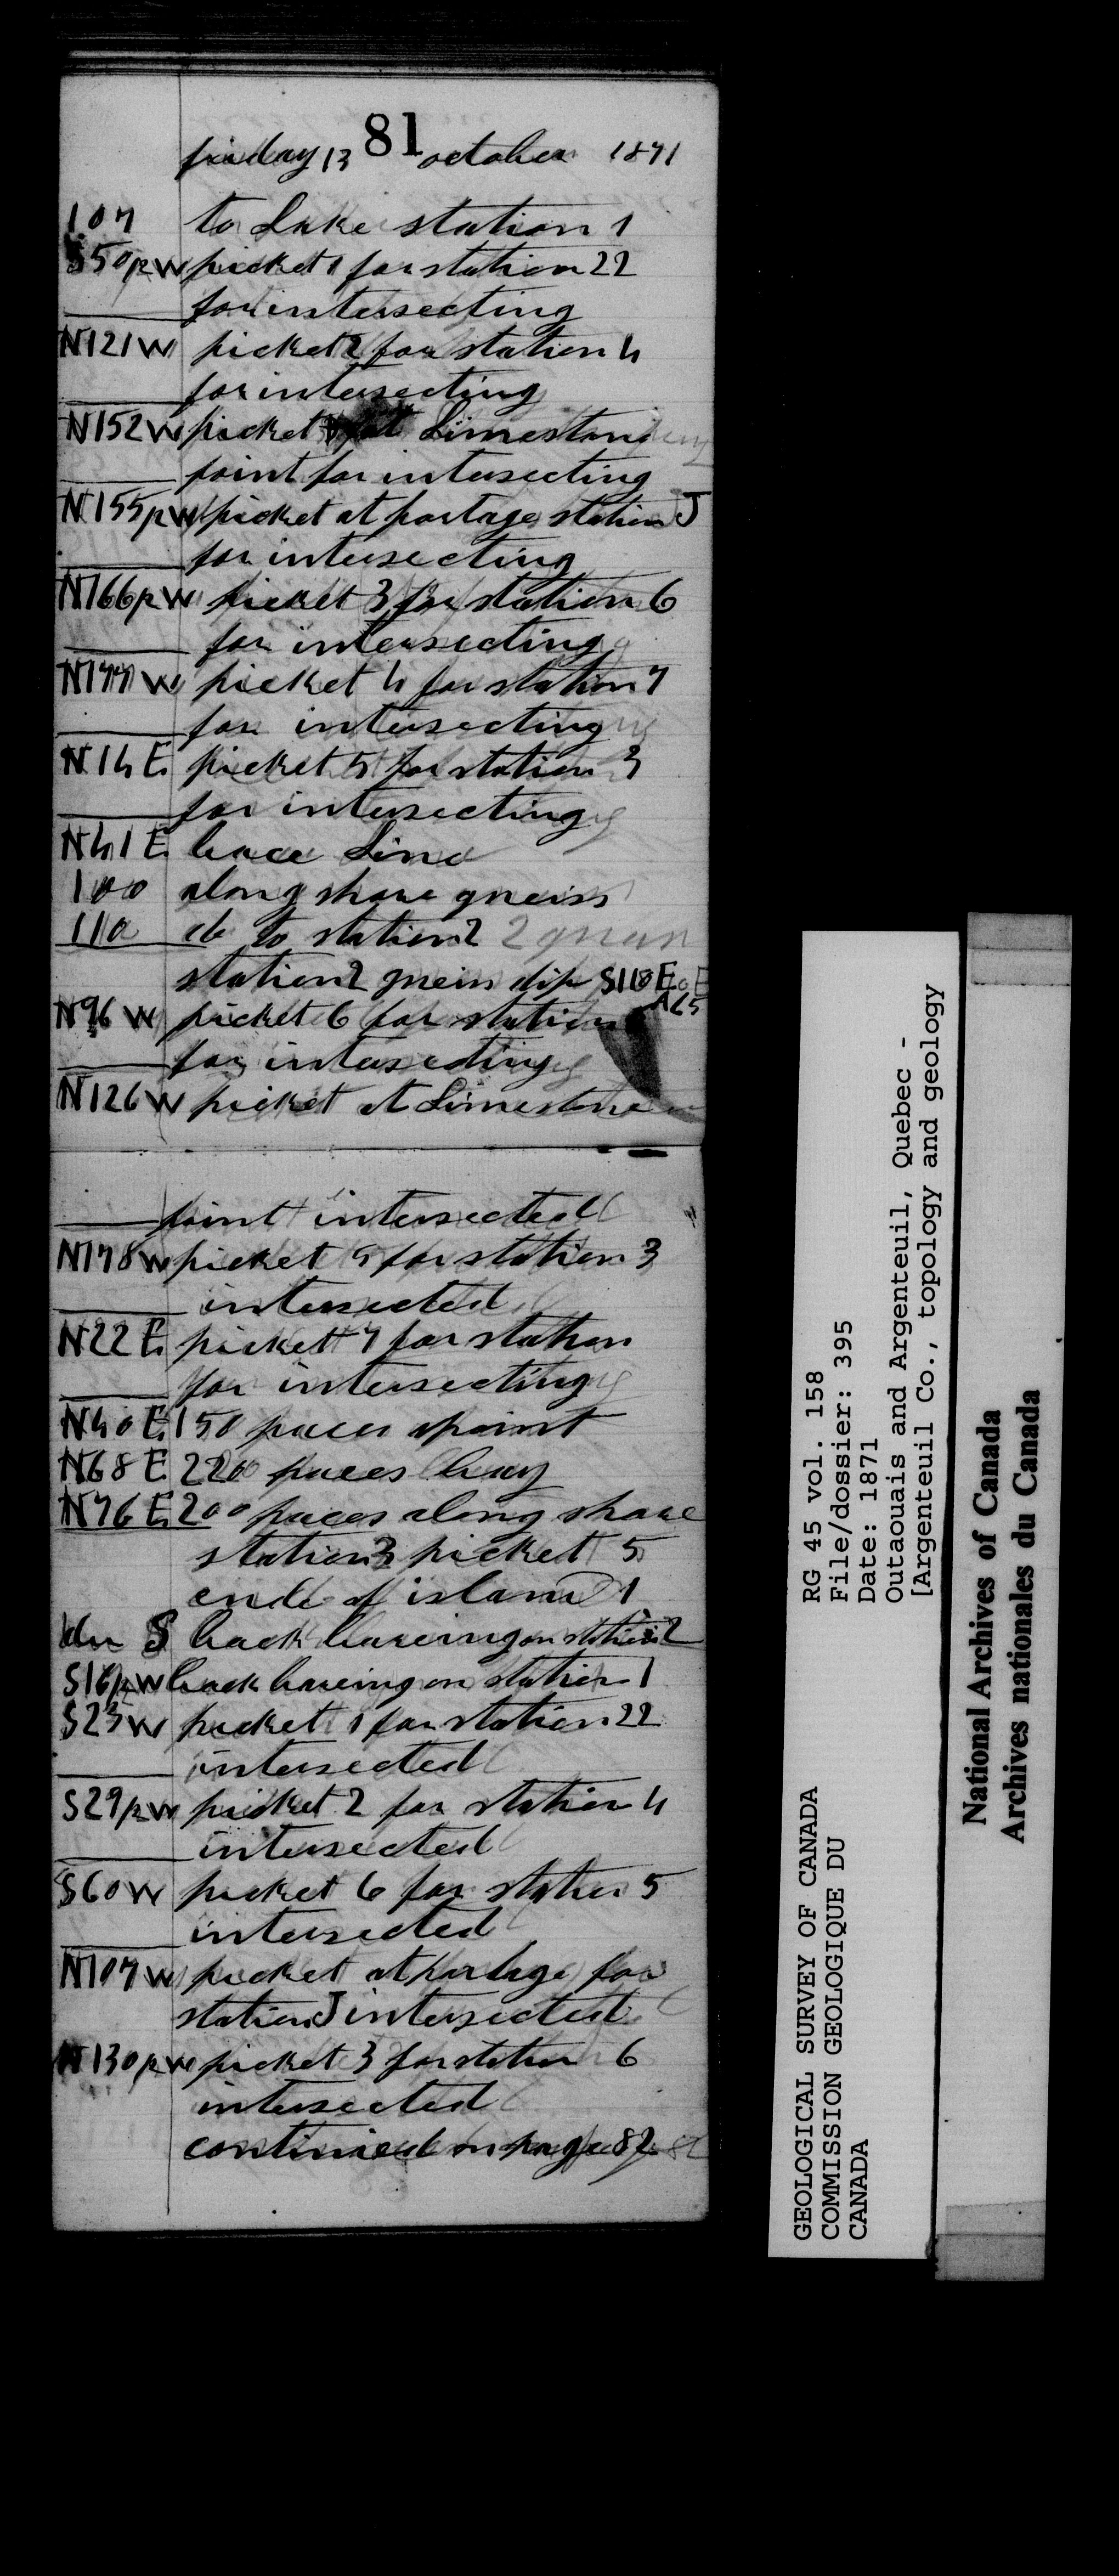 81
friday 13 october 1871
107 to Lake station 1
S50½W picket 1 for station 22
for intersecting
N121W picket 2 for station 4
for intersecting
N152W picket at Limestone
point for intersecting
N155½W picket at portage station J
for intersecting
N166½W picket 3 for station 6
for intersecting
N177W picket 4 for station 7
for intersecting
N14E picket 5 for station 3
for intersecting
N41E bace Line
100 along shore gneiss
110 do to station 2
station 2 gneiss dip S118E
A65
N96W picket 6 for station
for intersecting
N126W picket at Limestone
point intersected
N178W picket 5 for station 3
intersected
N22E picket 7 for station
for intersecting
N40E 150 paces apoint
N68E 220 paces bay
N76E 200 paces along shore
station 3 picket 5
ende of island 1
due S back bareing on station 2
S16½W back bareing on station 1
S23W picket 1 for station 22
intersected
S29½W picket 2 for station 4
intersected
S60W picket 6 for station 5
intersected
N107W picket at portage for
station J intersected
N130½W picket 3 for station 6
intersected
continied on page 82
GEOLOGICAL SURVEY OF CANADA
COMMISSION GEOLOGIQUE DU
CANADA
RG 45 vol. 158
File/dossier: 395
Date: 1871
Outaouais and Argenteuil, Quebec -
[Argenteuil Co., topology and geology
National Archives of Canada
Archives nationales du Canada